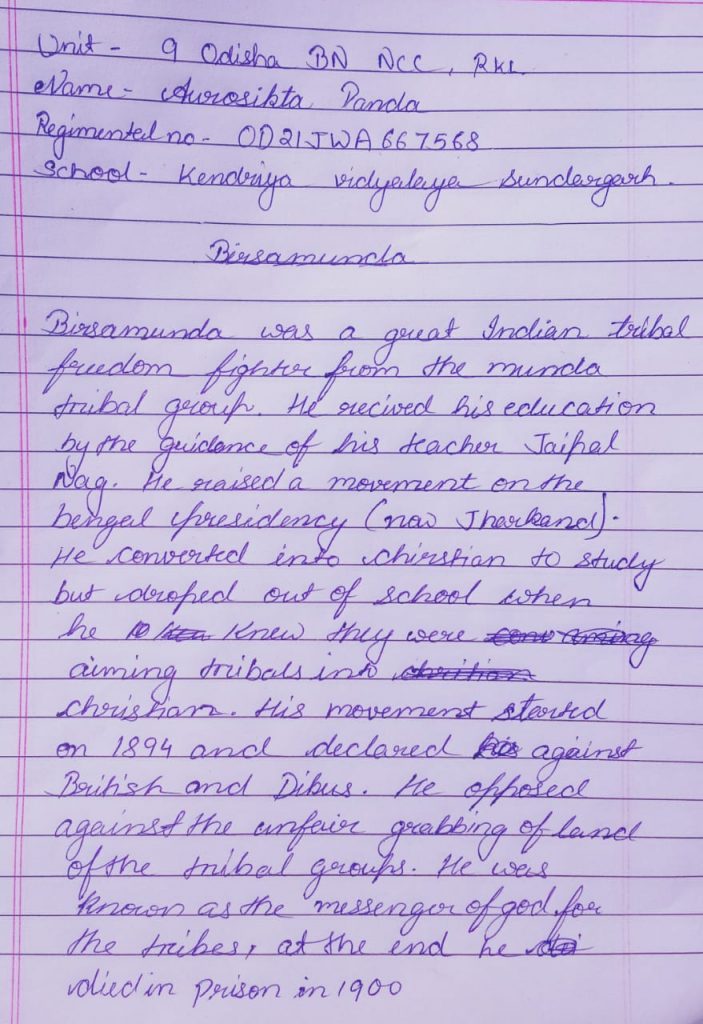 Unit - 9 Odisha BN NCC, RKL.
Name - Aurosikta Panda
Regimented no - OD21JWA667568
School - Kendriya vidyalaya Sundargarh.
Birsamunda
Birsamunda was a great Indian tribal
freedom fighter from the munda
tribal group. He recived his education
by the guidance of his teacher Jaipal
Nag. He raised a movement on the
bengal presidency (now Jharkand).
He converted into chirstian to study
but droped out of school when
he knew they were
aiming tribals into
christian. His movement started
on 1894 and declared against
British and Dibus. He opposed
against the unfair grabbing of land
of the tribal groups. He was
known as the messenger of god for
the tribes, at the end he
died in prison in 1900